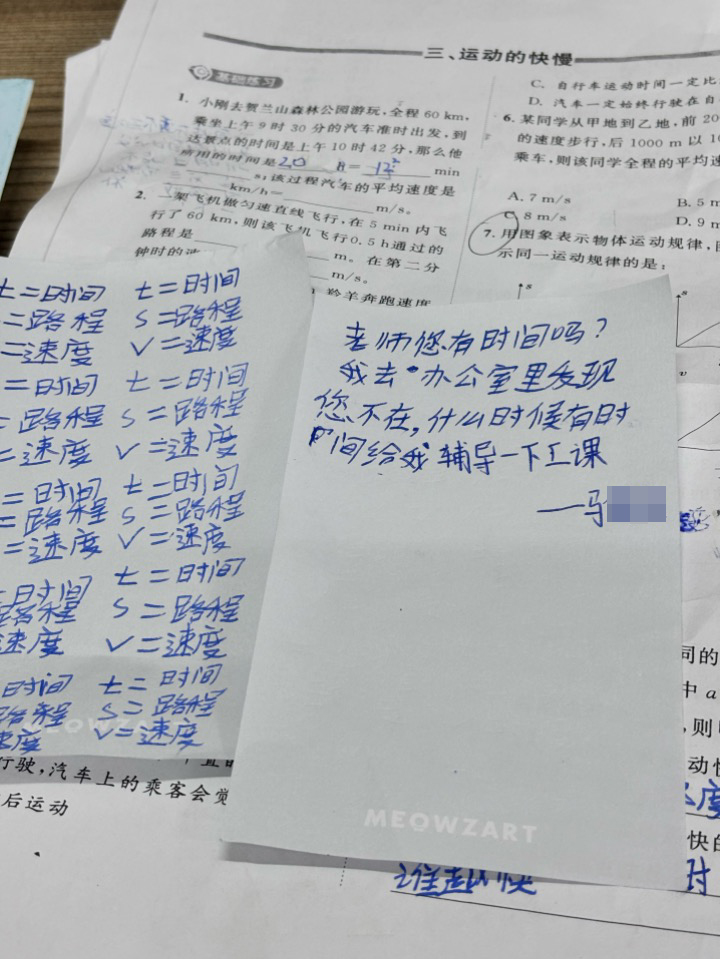 三、运动的快慢
基础练习
1. 小刚去贺兰山森林公园游玩,全程 60 km,
乘坐上午 9 时 30 分的汽车准时出发,到
达景点的时间是上午 10 时 42 分,那么他
所用的时间是 h= min
s;该过程汽车的平均速度是
km/h= m/s。
2. 一架飞机做匀速直线飞行,在 5 min 内飞
行了 60 km,则该飞机飞行0.5 h通过的
路程是 m。在第二分
钟时的
m/s。
羚羊奔跑速度
C. 自行车运动时间一定比
D. 汽车一定始终行驶在自
6. 某同学从甲地到乙地,前 20
的速度步行,后 1000 m 以 10
乘车,则该同学全程的平均速
A. 7 m/s B. 5 m
C. 8 m/s D. 9 m
7. 用图象表示物体运动规律,
示同一运动规律的是:
s
s
v
t=时间 t=时间
=路程 s=路程
=速度 v=速度
=时间 t=时间
=路程 s=路程
=速度 v=速度
=时间 t=时间
=路程 s=路程
=速度 v=速度
=时间 t=时间
路程 s=路程
速度 v=速度
时间 t=时间
路程 s=路程
速度 v=速度
老师您有时间吗?
我去办公室里发现
您不在,什么时候有时
间给我辅导一下工课
—
MEOWZART
行驶,汽车上的乘客会觉
后运动
同的
中 a
,则
动快
度
快的
时